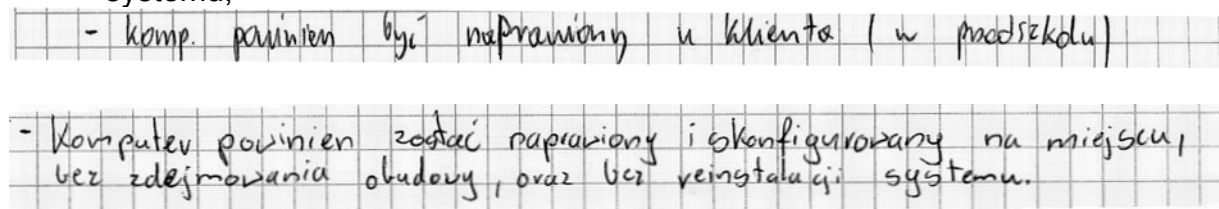 systemu,
- komp. powinien być naprawiony u klienta (w przedszkolu)
- Komputer powinien zostać naprawiony i skonfigurowany na miejscu,
bez zdejmowania obudowy, oraz bez reinstalacji systemu.